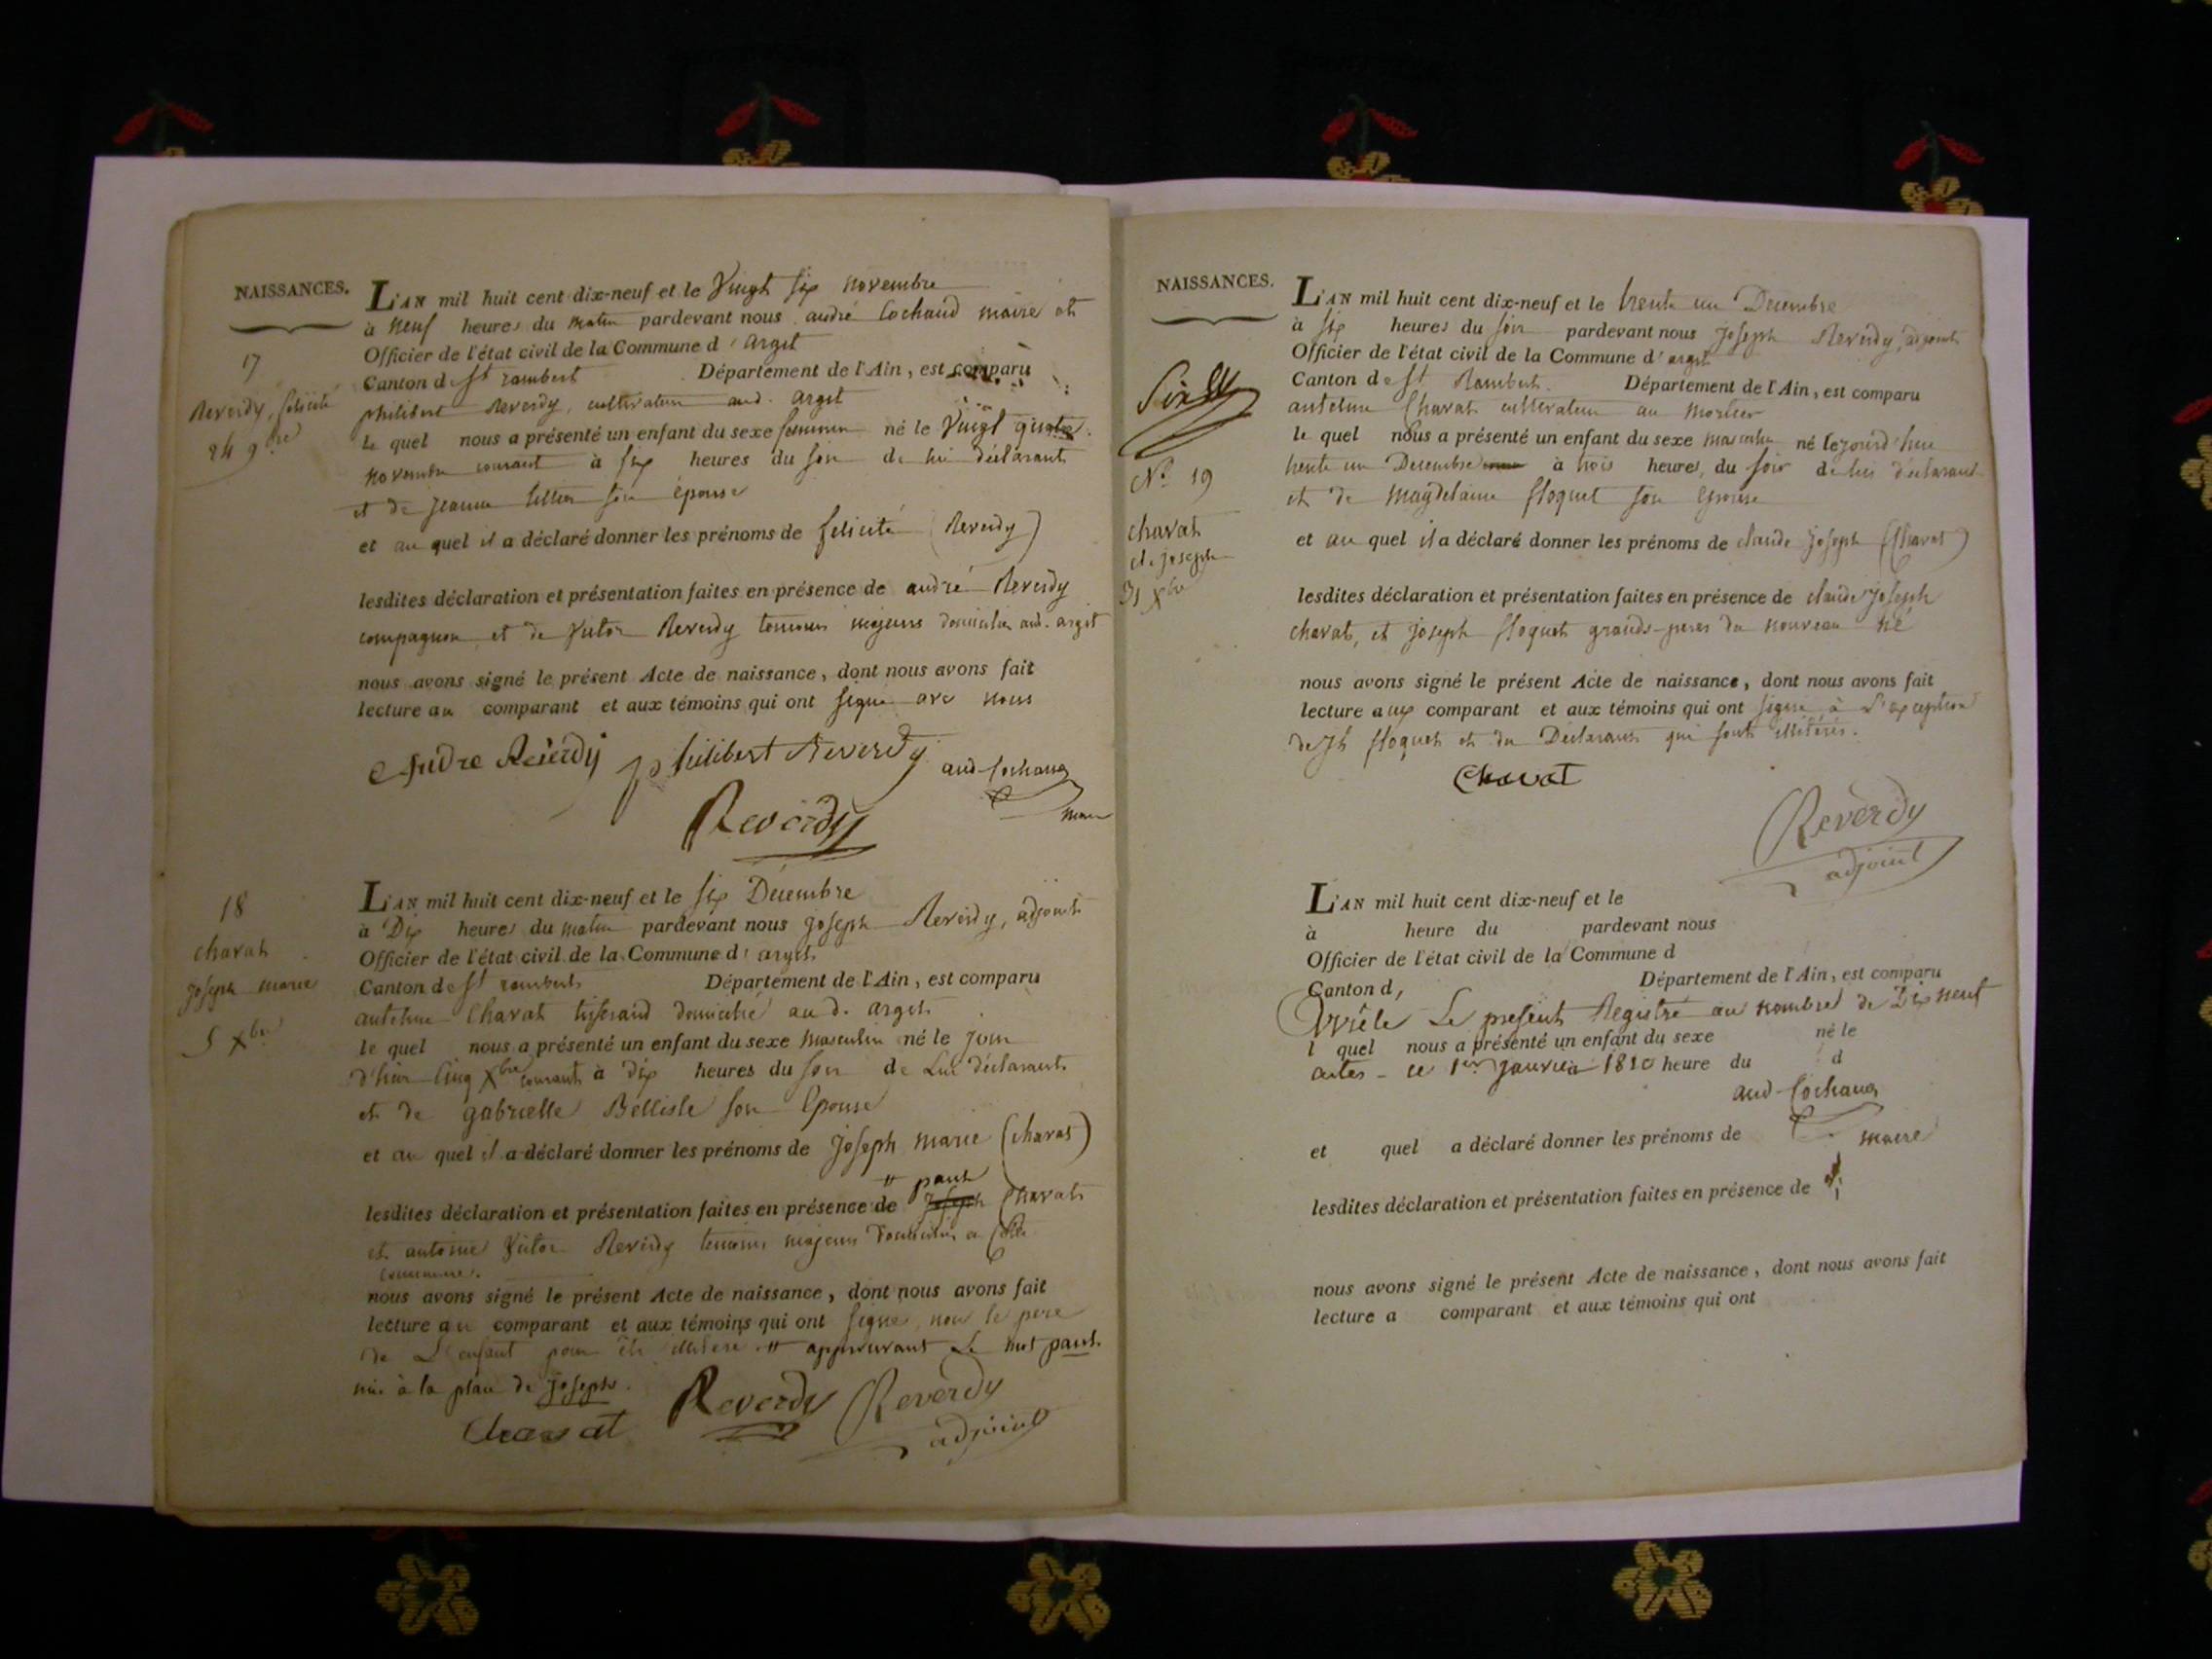 NAISSANCES.
17
Reverdy, felicité
24 9bre
L'AN mil huit cent dix-neuf et le Vingt six novembre
à neuf heures du matin pardevant nous andré Cochaud maire et
Officier de l'état civil de la Commune d'argit
Canton de St rambert Département de l'Ain, est comparu
philibert Reverdy, cultivateur aud. argit
Le quel nous a présenté un enfant du sexe feminin né le Vingt quatre
novembre courant à six heures du soir de lui déclarant
et de jeanne son épouse
et au quel il a déclaré donner les prénoms de felicité (Reverdy)
lesdites déclaration et présentation faites en présence de andré Reverdy
compagnon et de Victor Reverdy temoins majeurs domiciliés aud. argit
nous avons signé le présent Acte de naissance, dont nous avons fait
lecture au comparant et aux témoins qui ont signé avec nous
Andre Reverdy philibert Reverdy and Cochaud
maire
Reverdy
18
charat
joseph marie
5 Xbre
L'AN mil huit cent dix-neuf et le six Décembre
à Dix heures du matin pardevant nous joseph Reverdy, adjoint
Officier de l'état civil de la Commune d'argit
Canton de St rambert Département de l'Ain, est comparu
antelme Charat tisserand domicilié au d. argit
le quel nous a présenté un enfant du sexe masculin né le jour
d'hier Cinq Xbre courant à dix heures du soir de Lui déclarant
et de gabrielle Bellisle son Epouse
et au quel il a déclaré donner les prénoms de joseph marie (charat)
" paul
lesdites déclaration et présentation faites en présence de joseph Charat
et antoine Victor Reverdy temoins majeurs domiciliés a
commune.
nous avons signé le présent Acte de naissance, dont nous avons fait
lecture au comparant et aux témoins qui ont signé, non le pere
de L'enfant pour illitere " approuvant Le mot paul.
mis à la place de joseph.
Charat Reverdy Reverdy
adjoint
NAISSANCES.
N° 19
charat
cl. joseph
31 Xbre
L'AN mil huit cent dix-neuf et le trente un Decembre
à six heures du soir pardevant nous joseph Reverdy, adjoint
Officier de l'état civil de la Commune d'argit
Canton de St Rambert. Département de l'Ain, est comparu
antelme Charat cultivateur au morlier
le quel nous a présenté un enfant du sexe masculin né lejourd'hui
trente un Decembre à trois heures du soir de lui déclarant
et de magdelaine floquet son Epouse
et au quel il a déclaré donner les prénoms de claude joseph (Charat)
lesdites déclaration et présentation faites en présence de claude joseph
charat, et joseph floquet grands-peres du nouveau né
nous avons signé le présent Acte de naissance, dont nous avons fait
lecture aux comparant et aux témoins qui ont signé à L'exception
de jh floquet et du Déclarant qui sont illitérés.
Charat
Reverdy
adjoint
L'AN mil huit cent dix-neuf et le
à heure du pardevant nous
Officier de l'état civil de la Commune d
Canton d, Département de l'Ain, est comparu
Arrêté Le present Registre au nombre de Dix neuf
l quel nous a présenté un enfant du sexe né le
actes - ce 1er janvier 1820 heure du d
and Cochaud
maire
et quel a déclaré donner les prénoms de
lesdites déclaration et présentation faites en présence de
nous avons signé le présent Acte de naissance, dont nous avons fait
lecture a comparant et aux témoins qui ont